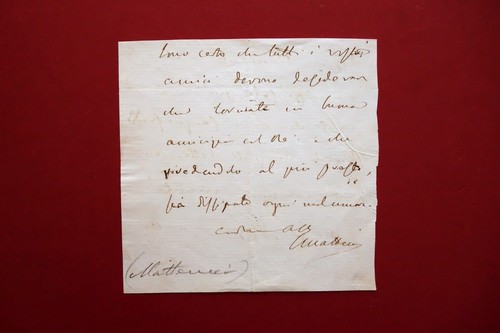 sono certo che tutti i vostri
amici devono desiderare
che torniate in buona
amicizia col Re e che
vedendolo al più presto,
sia dissipato ogni malumore.
(Matteucci)